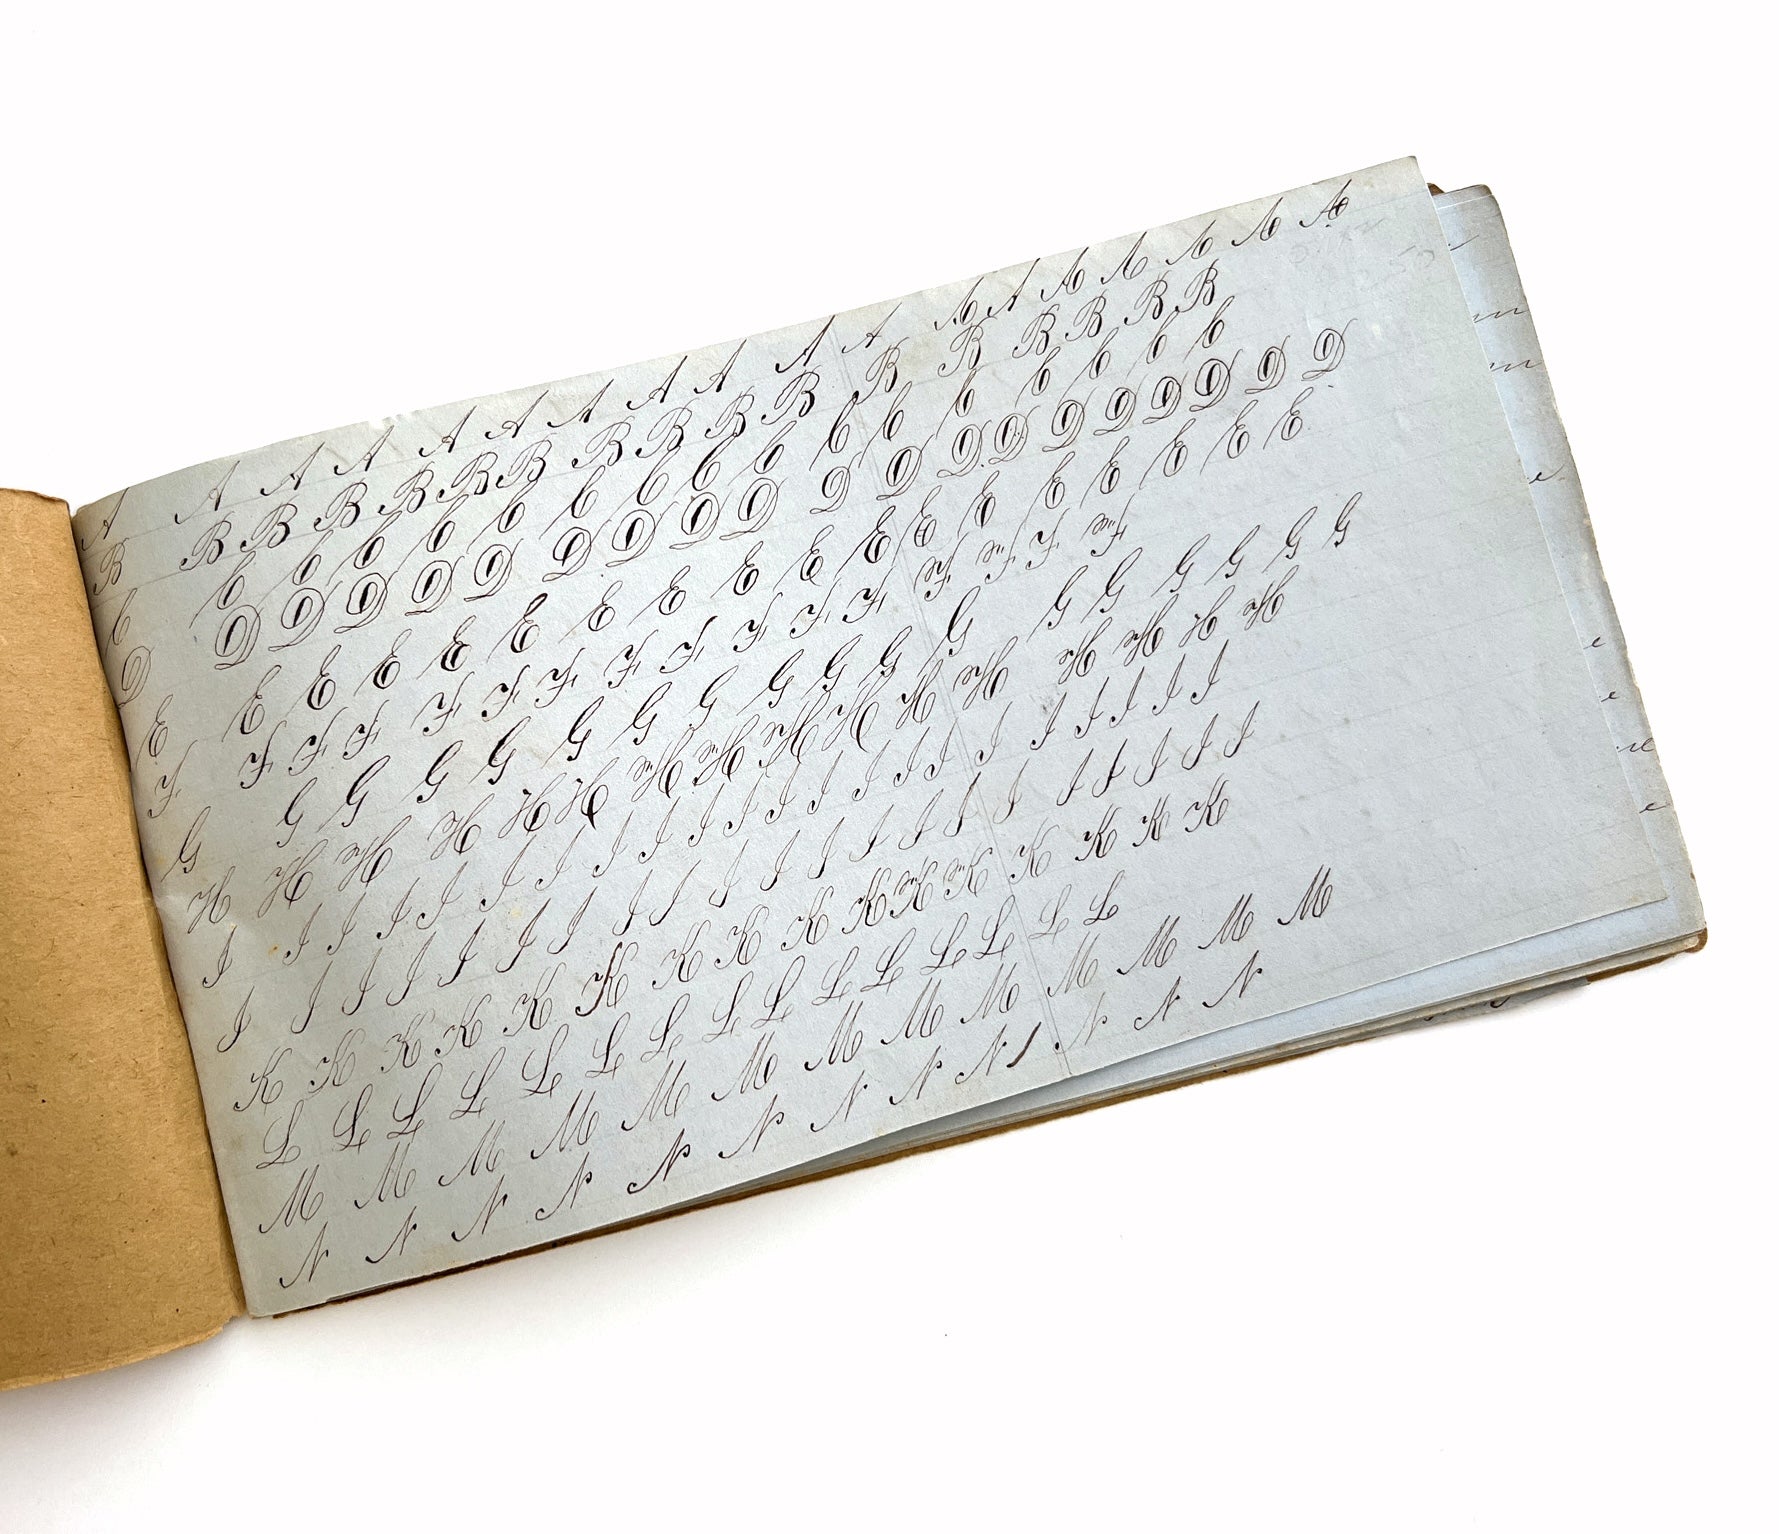 A A A A A A A A A A A A A A A A A A
B B B B B B B B B B B B B B B B B
C C C C C C C C C C C C C C C C C
D D D D D D D D D D D D D D D D D D D D
E E E E E E E E E E E E E E E E E E
F F F F F F F F F F F F F F F F
G G G G G G G G G G G G G G G G G G
H H H H H H H H H H H H H H H H
I I I I I I I I I I I I I I I I I I I I I I
J J J J J J J J J J J J J J J J J J J J J
K K K K K K K K K K K K K K K K
L L L L L L L L L L L L L L L
M M M M M M M M M M M M M
N N N N N N N N N N N N